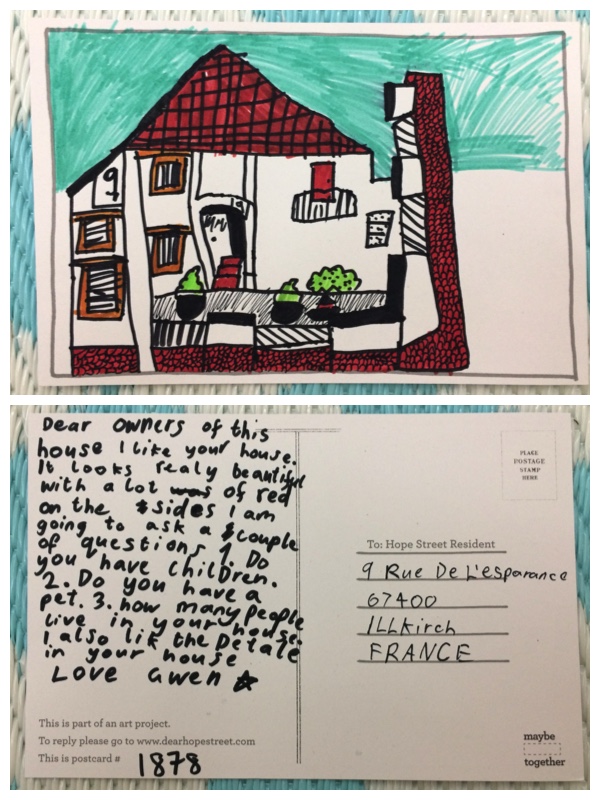 9
19
Dear owners of this
house I like your house.
It looks realy beautiful
with a lot was of red
on the sides I am
going to ask a couple
of questions 1. Do
you have children.
2. Do you have a
pet. 3. how many people
live in your house.
I also lik the Detale
in your house
Love Gwen
This is part of an art project.
To reply please go to www.dearhopestreet.com
This is postcard # 1878
PLACE
POSTAGE
STAMP
HERE
To: Hope Street Resident
9 Rue De L'esparance
67400
ILLKirch
FRANCE
maybe
together